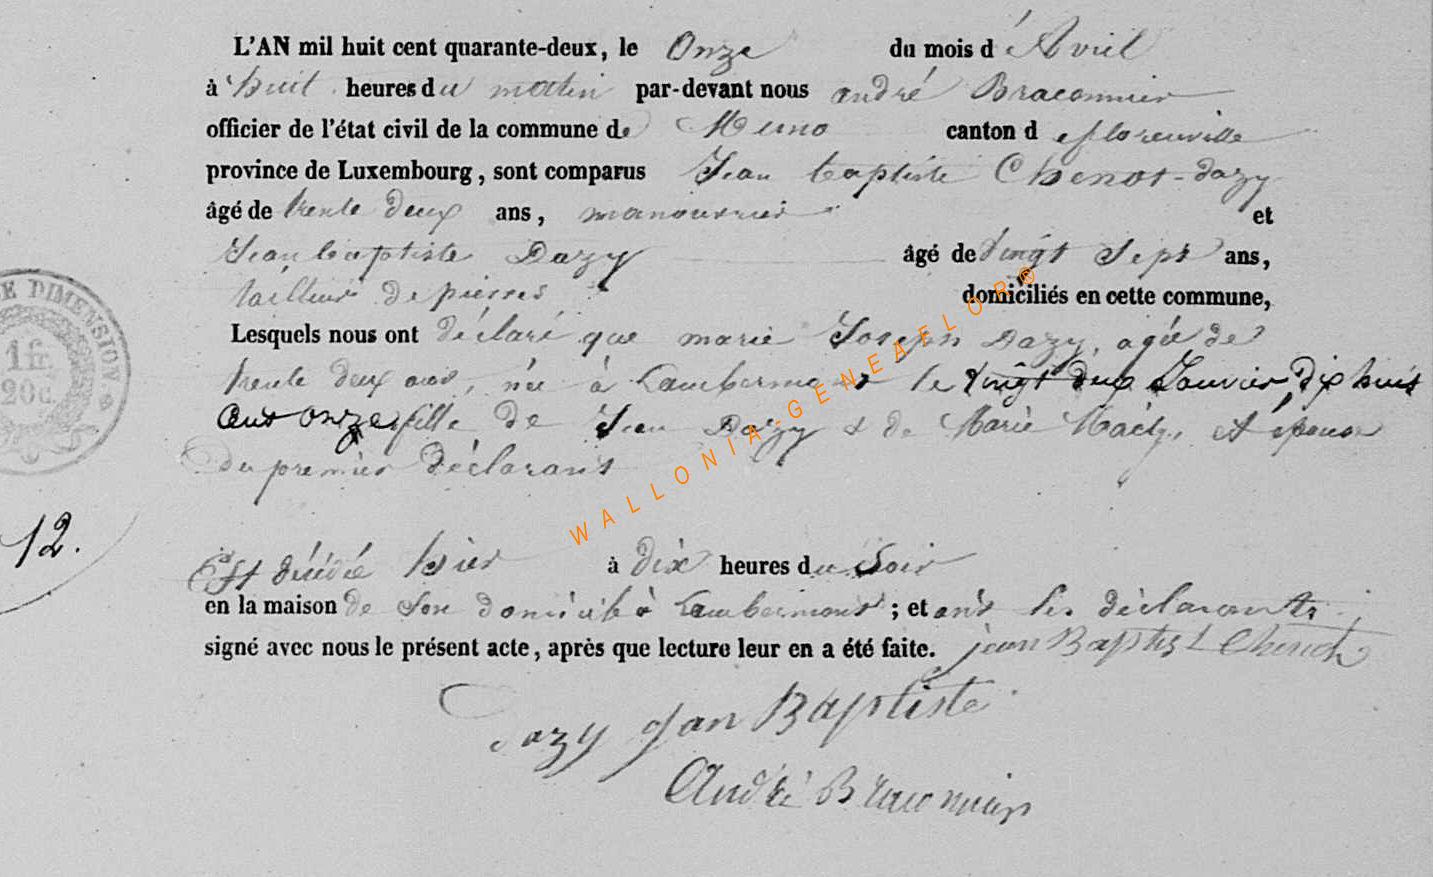 L'AN mil huit cent quarante-deux, le Onze du mois d'Avril
à huit heures du matin par-devant nous andré Braconnier
officier de l'état civil de la commune de Muno canton de florenville
province de Luxembourg, sont comparus Jean baptiste Chenot-dazy
âgé de trente deux ans, manouvrier et
Jean baptiste Dazy âgé de vingt Sept ans,
tailleur de pierres domiciliés en cette commune,
Lesquels nous ont déclaré que marie Joseph Dazy, agée de
trente deux ans, née à Lambermont le vingt deux Janvier, dix huit
Cent onze fille de Jean Dazy & de Marie et épouse
du premier déclarant
12.
Est décédée hier à dix heures du Soir
en la maison de Son domicile à Lambermont ; et ont les déclarants
signé avec nous le présent acte, après que lecture leur en a été faite. jean Baptist Chenot
Dazy Jan Baptiste
André Braconnier
E DIMENSION.
1 fr.
20c.
WALLONIA-GENEAFLOR®